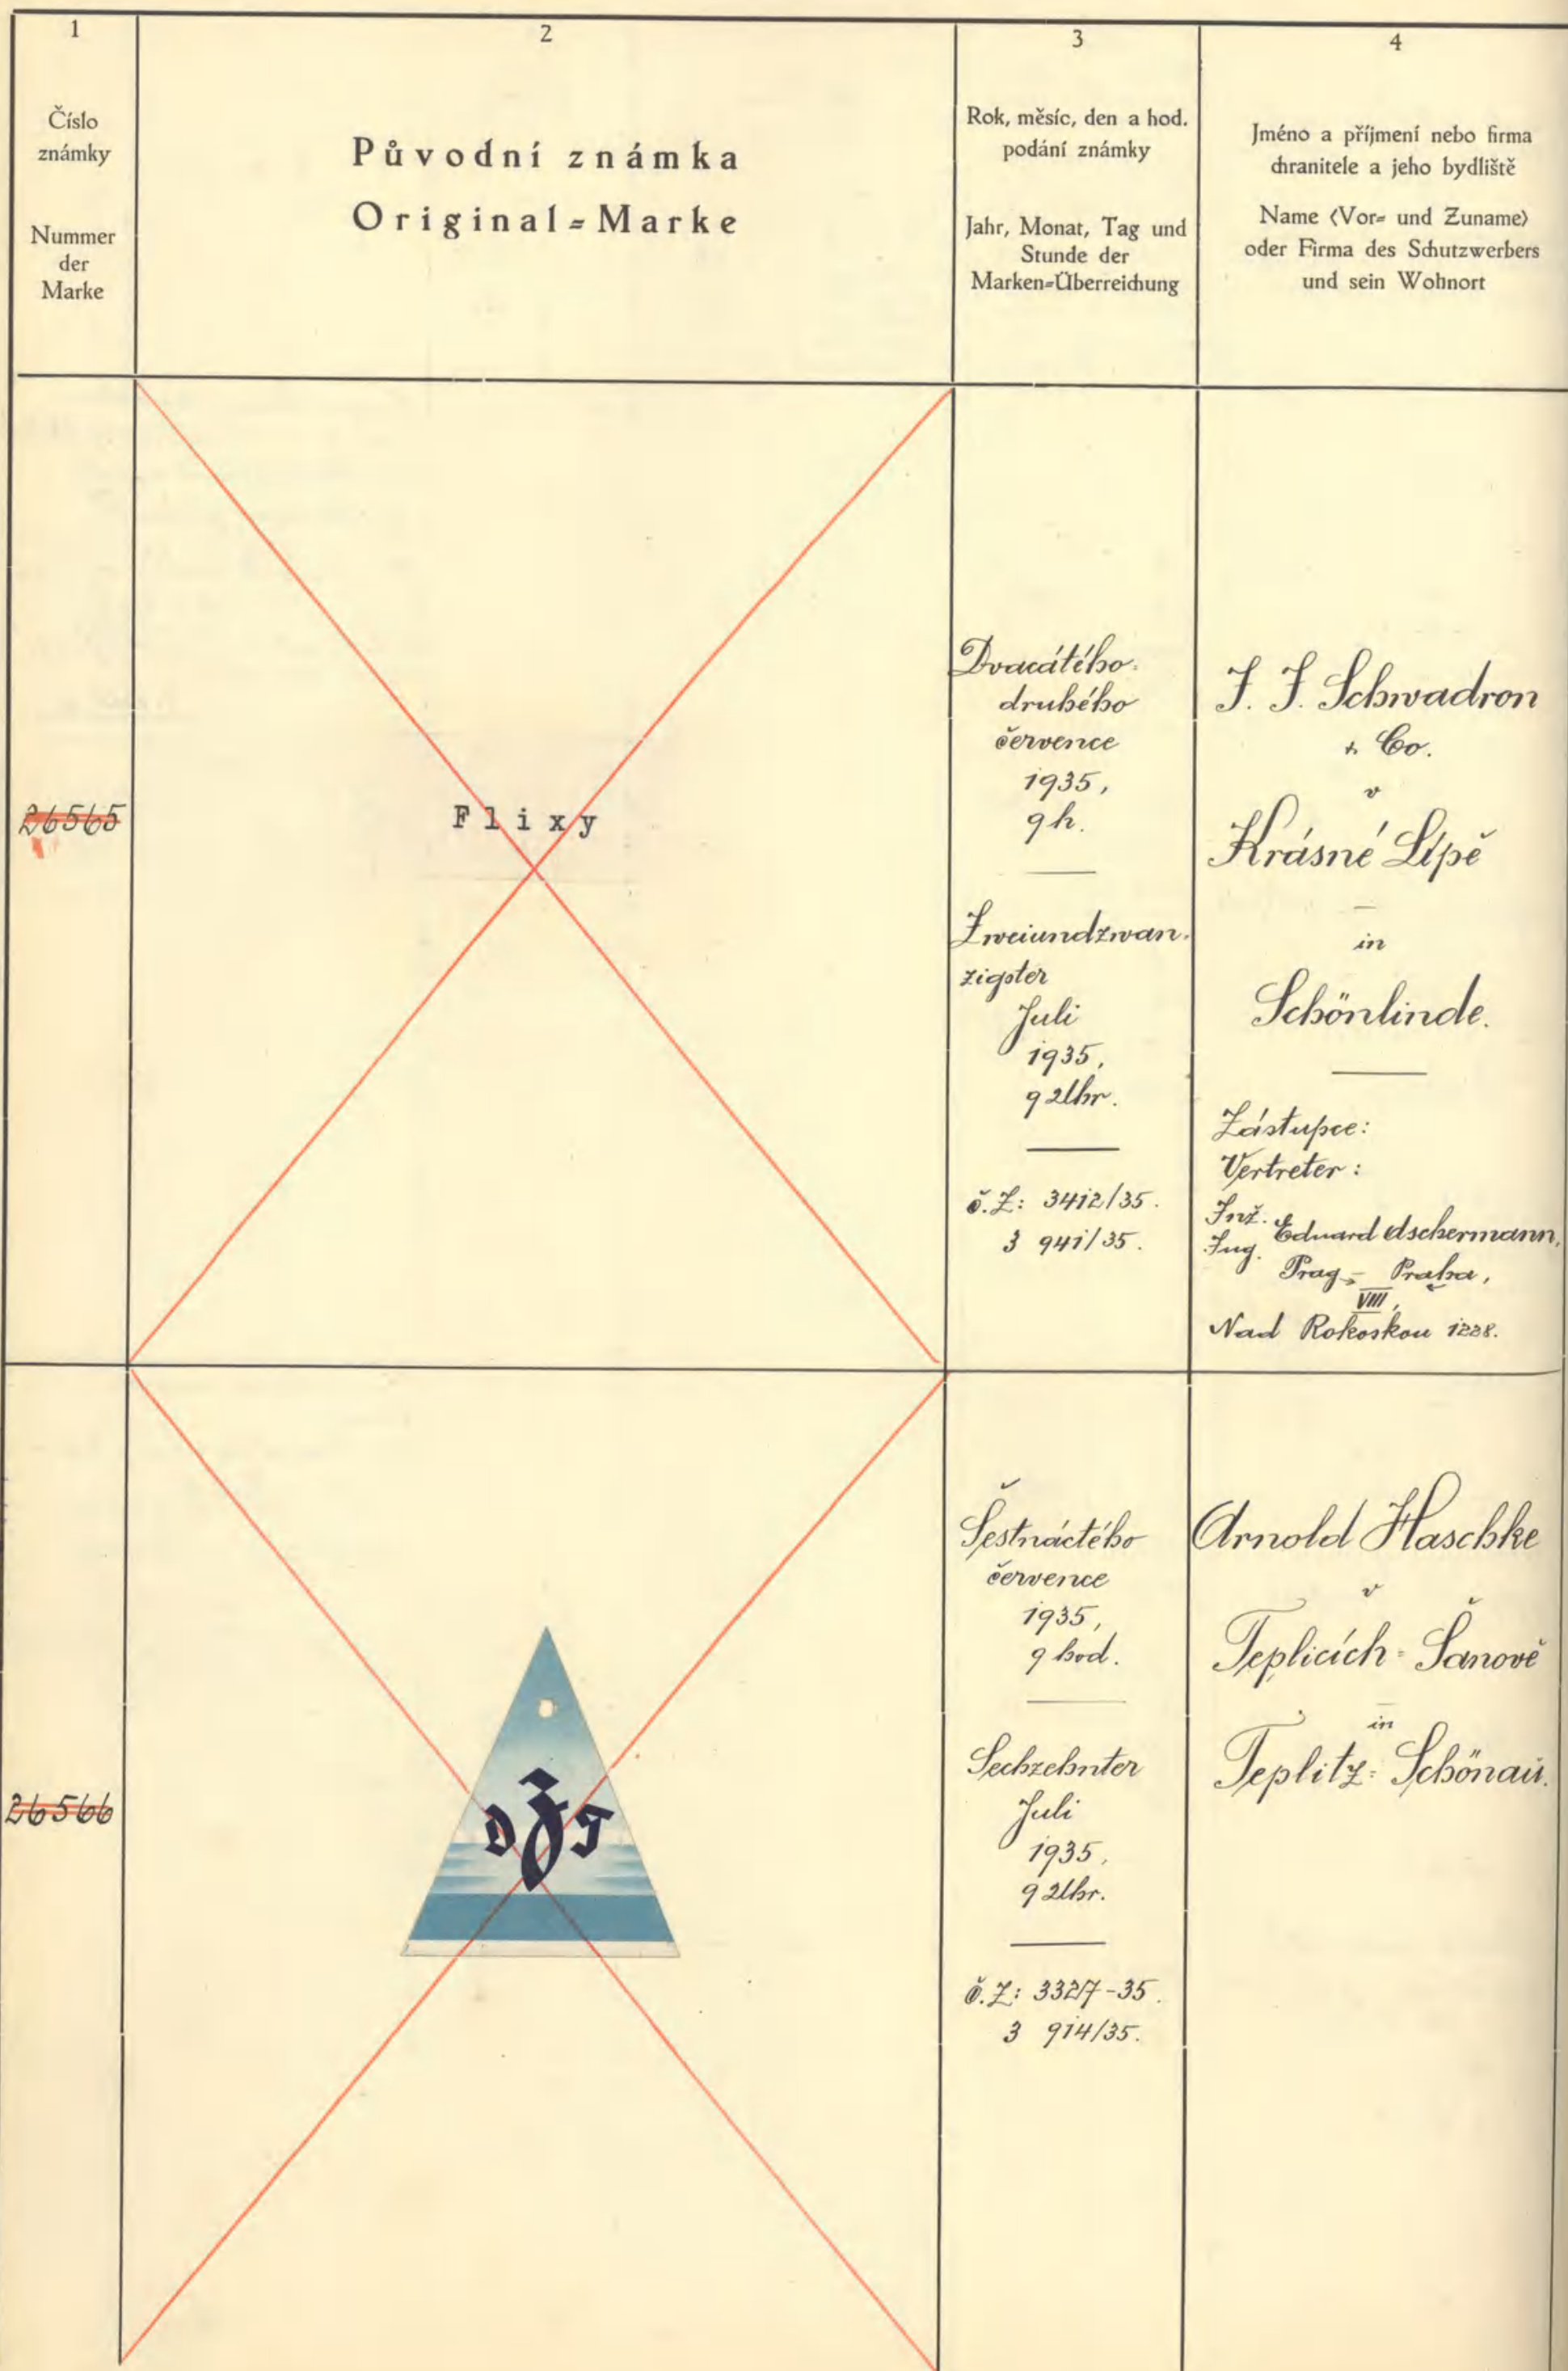 1
2
3
4
Číslo
známky
Nummer
der
Marke
Původní známka
Original=Marke
Rok, měsíc, den a hod.
podání známky
Jahr, Monat, Tag und
Stunde der
Marken=Überreichung
Jméno a příjmení nebo firma
chranitele a jeho bydliště
Name (Vor= und Zuname)
oder Firma des Schutzwerbers
und sein Wohnort
26565
Flixy
Dvacátého-
druhého
července
1935,
9 h.
Zweiundzwan-
zigster
Juli
1935,
9 Uhr.
č.Z: 3412/35.
3 941/35.
J. J. Schwadron
& Co.
v
Krásné Lípě
in
Schönlinde.
Zástupce:
Vertreter:
Inž.
Ing. Eduard Aschermann,
Prag - Praha,
VIII,
Nad Rokoskou 1228.
26566
Šestnáctého
července
1935,
9 hod.
Sechzehnter
Juli
1935,
9 Uhr.
č.Z: 3327-35.
3 914/35.
Arnold Haschke
v
Teplicích-Šanově
in
Teplitz-Schönau.